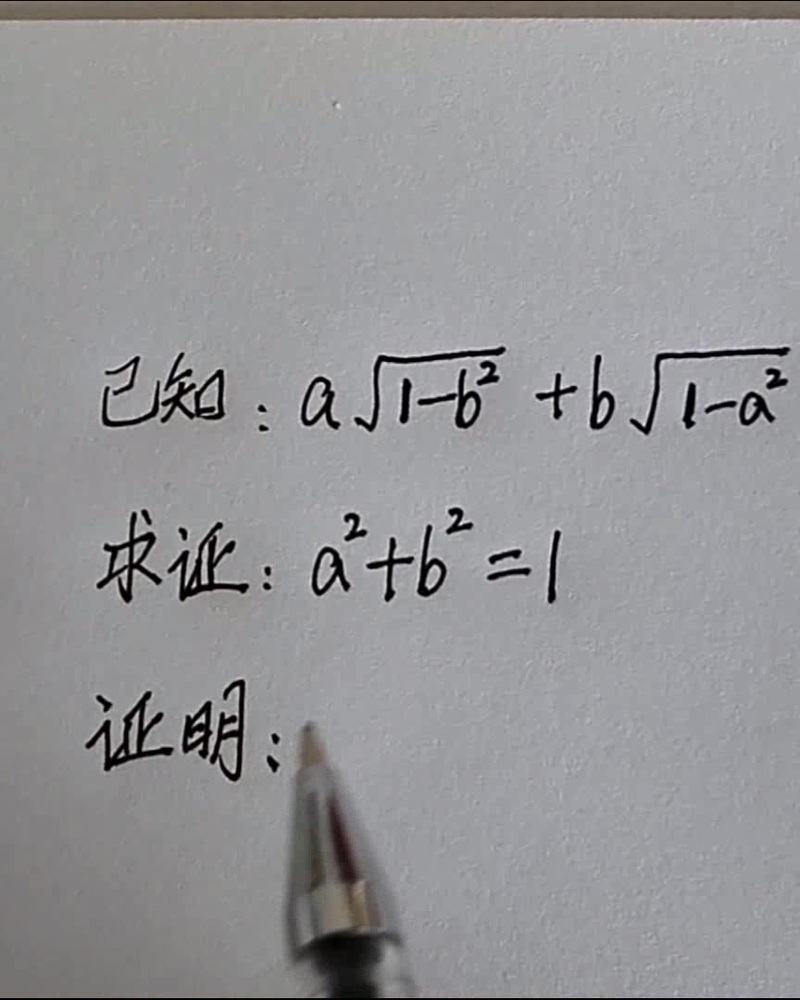 已知：a√(1-b²) + b√(1-a²)
求证：a²+b²=1
证明：